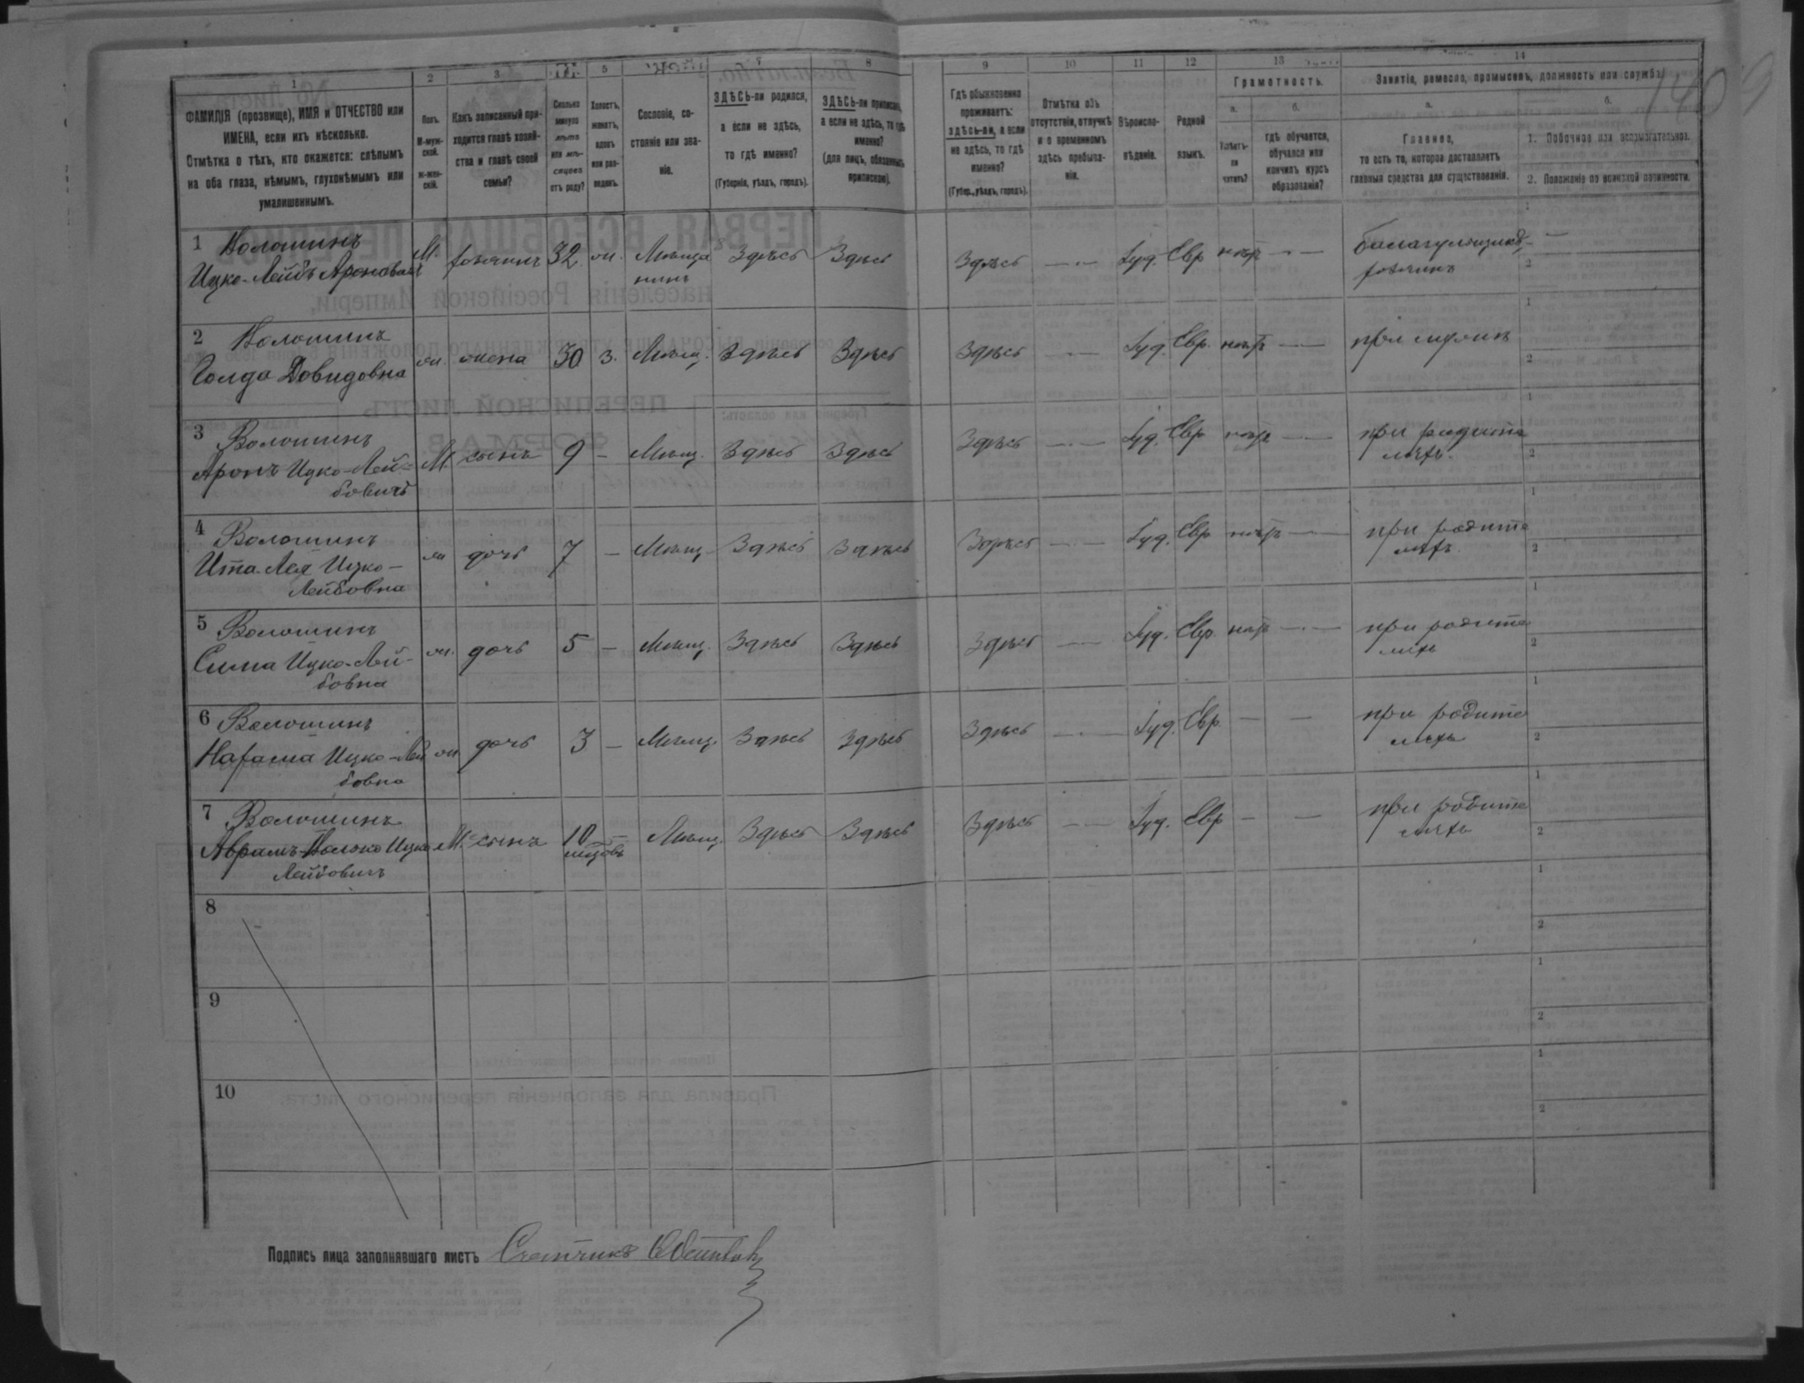 1 2 3 5 7 8 9 10 11 12 13 14
ФАМИЛІЯ (прозвище), ИМЯ и ОТЧЕСТВО или
ИМЕНА, если ихъ нѣсколько.
Отмѣтка о тѣхъ, кто окажется: слѣпымъ
на оба глаза, нѣмымъ, глухонѣмымъ или
умалишеннымъ.
Полъ.
М-муж-
ской.
ж-жен-
скій.
Какъ записанный при-
ходится главѣ хозяй-
ства и главѣ своей
семьи?
Сколько
минуло
лѣтъ
или мѣ-
сяцевъ
отъ роду?
Холостъ,
женатъ,
вдовъ
или раз-
веденъ.
Сословіе, со-
стояніе или зва-
ніе.
ЗДѢСЬ-ли родился,
а если не здѣсь,
то гдѣ именно?
(Губернія, уѣздъ, городъ).
ЗДѢСЬ-ли приписанъ,
а если не здѣсь, то гдѣ
именно?
(для лицъ, обязанныхъ
припискою).
Гдѣ обыкновенно
проживаетъ:
здѣсь-ли, а если
не здѣсь, то гдѣ
именно?
(Губер., уѣздъ, городъ).
Отмѣтка объ
отсутствіи, отлучкѣ
и о временномъ
здѣсь пребыва-
ніи.
Вѣроиспо-
вѣданіе.
Родной
языкъ.
Грамотность.
а.
Умѣетъ-
ли
читать?
б.
гдѣ обучается,
обучался или
кончилъ курсъ
образованія?
Занятіе, ремесло, промыселъ, должность или служба.
а.
Главное,
то есть то, которое доставляетъ
главныя средства для существованія.
б.
1. Побочное или вспомогательное.
2. Положеніе по воинской повинности.
1 Волошинъ
Ицко-Лейбъ Ароновичъ М. хозяинъ 32 ж. Мѣща
нинъ Здѣсь Здѣсь Здѣсь — Іуд. Евр. нѣтъ — балагульщикъ-
хозяинъ —
2 Волошинъ
Голда Довидовна ж. жена 30 з. Мѣщ. Здѣсь Здѣсь Здѣсь — Іуд. Евр. нѣтъ — при мужѣ
3 Волошинъ
Аронъ Ицко-Лей-
бовичъ М. сынъ 9 — Мѣщ. Здѣсь Здѣсь Здѣсь — Іуд. Евр. нѣтъ — при родите
ляхъ.
4 Волошинъ
Ита-Лея Ицко-
Лейбовна ж. дочь 7 — Мѣщ. Здѣсь Здѣсь Здѣсь — Іуд. Евр. нѣтъ — при родите
ляхъ
5 Волошинъ
Сима Ицко-Лей-
бовна ж. дочь 5 — Мѣщ. Здѣсь Здѣсь Здѣсь — Іуд. Евр. нѣтъ — при родите
ляхъ
6 Волошинъ
Ицко-Лей
бовна ж. дочь 3 — Мѣщ. Здѣсь Здѣсь Здѣсь — Іуд. Евр. — — при родите
ляхъ
7 Волошинъ
Аврамъ Ицко
Лейбовичъ М. сынъ 10
мѣсяцовъ — Мѣщ. Здѣсь Здѣсь Здѣсь — Іуд. Евр. — — при родите
ляхъ
8
9
10
Подпись лица заполнявшаго листъ Счетчикъ